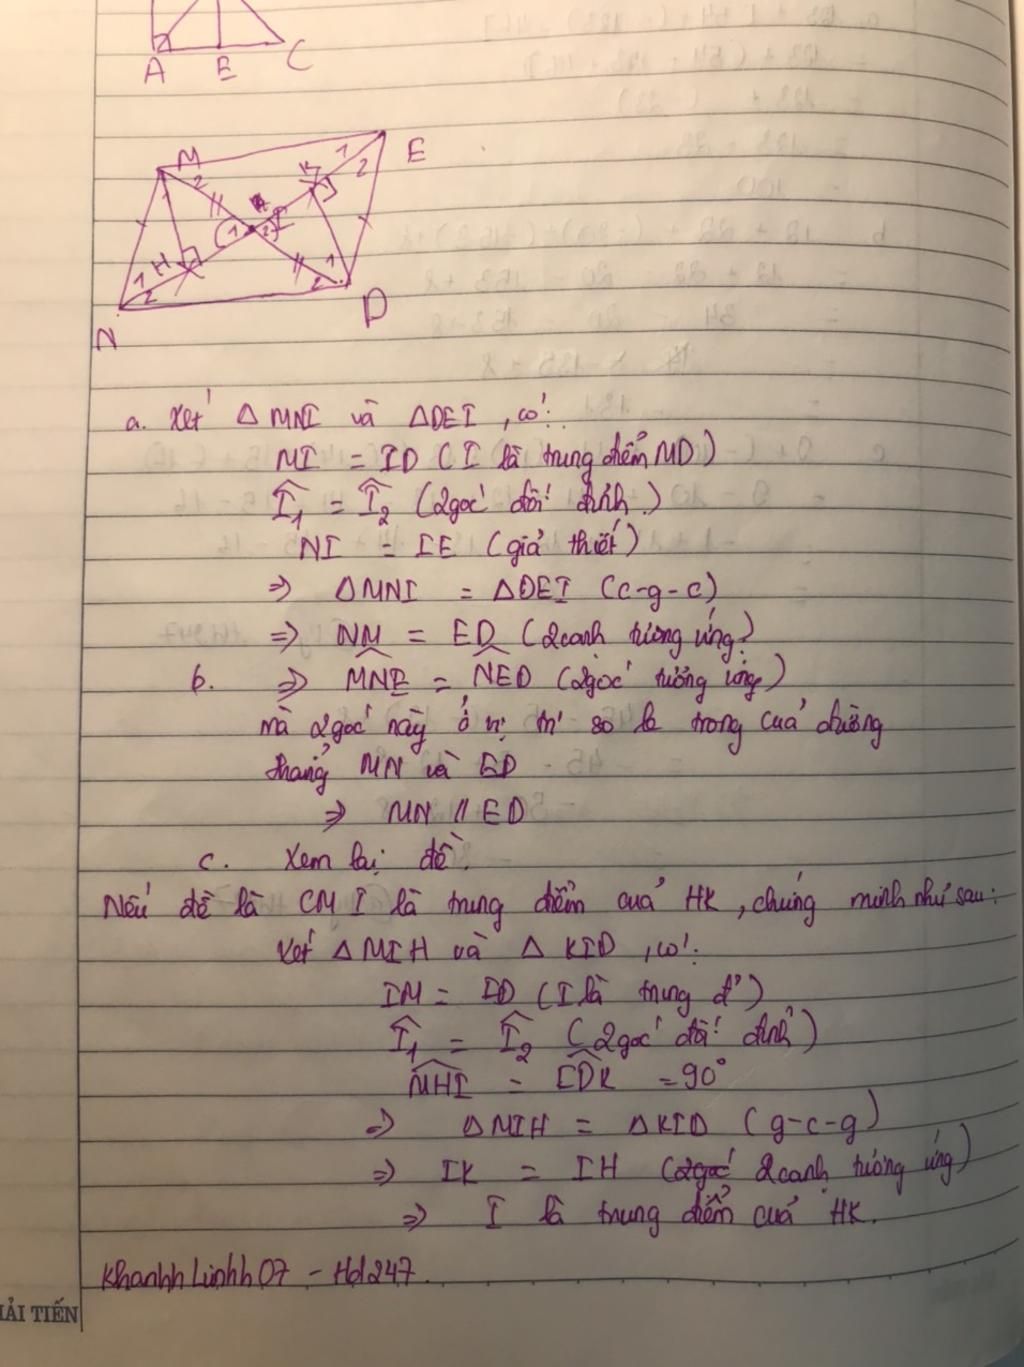 A E C
M E
1 2
2 K
I
1 2
H
1 1
2 2
N D
a. Xét Δ MNI và ΔDEI , có:
MI = ID ( I là trung điểm MD )
I₁ = I₂ (2góc đối đỉnh )
NI = IE (giả thiết)
=> ΔMNI = ΔDEI (c-g-c)
=> NM = ED (2cạnh tương ứng)
b. => MNE = NED (2góc tương ứng)
mà 2góc này ở vị trí so le trong của đường
thẳng MN và ED
=> MN // ED
c. Xem lại đề.
Nếu đề là CM I là trung điểm của HK , chứng minh như sau:
Xét Δ MIH và Δ KID , có:
IM = ID ( I là trung đ' )
I₁ = I₂ ( 2góc đối đỉnh )
MHI = IDK = 90°
=> ΔMIH = ΔKID ( g-c-g )
=> IK = IH (2góc 2cạnh tương ứng)
=> I là trung điểm của HK.
Khanhh Linhh 07 - Hd247.
IẢI TIẾN